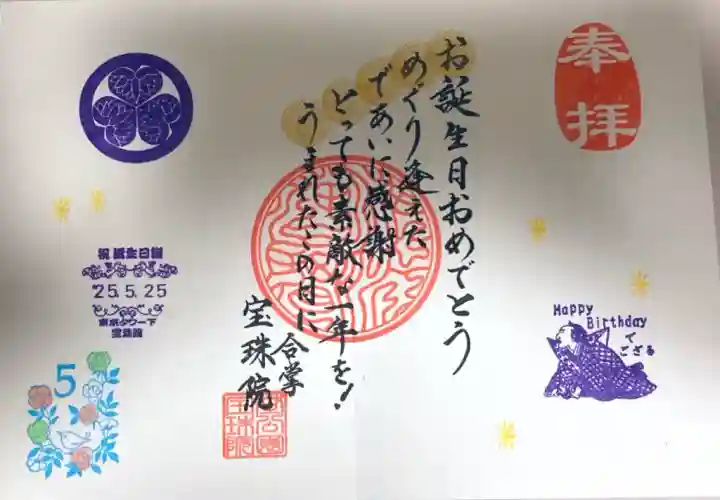 奉拝
お誕生日おめでとう
めぐり逢えた
であいに感謝
とっても素敵な一年を!
うまれたこの日に
合掌
宝珠院
Happy
Birthday
で
ござる
祝誕生日
'25.5.25
東京タワー下
宝珠院
5